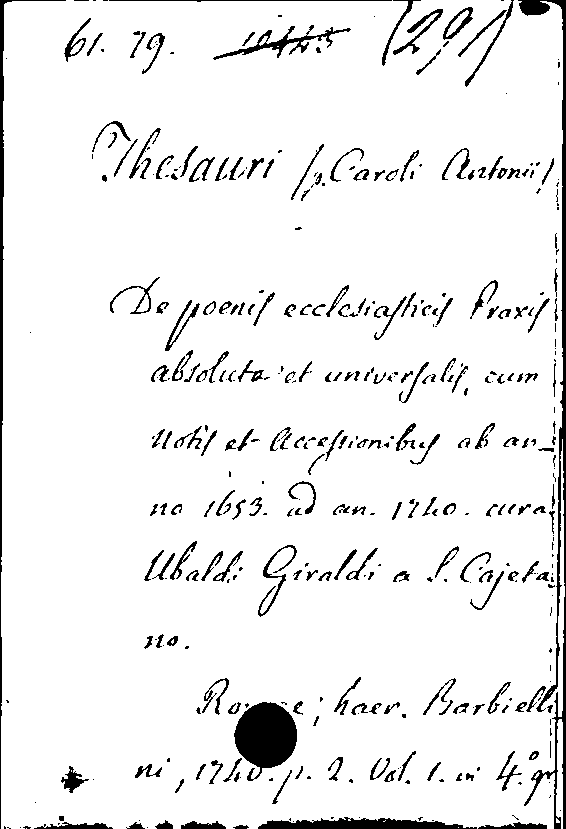 61. 79. 10443 (291)
Thesauri /p. Caroli Antonii/
De poenis ecclesiasticis Praxis
absoluta et universalis, cum
notis et Accessionibus ab an-
no 1653. ad an. 1740. cura
Ubaldi Giraldi a S. Cajeta-
no.
Romae; haer. Barbielli
ni, 1740. p. 2. Vol. 1. in 4.º gr